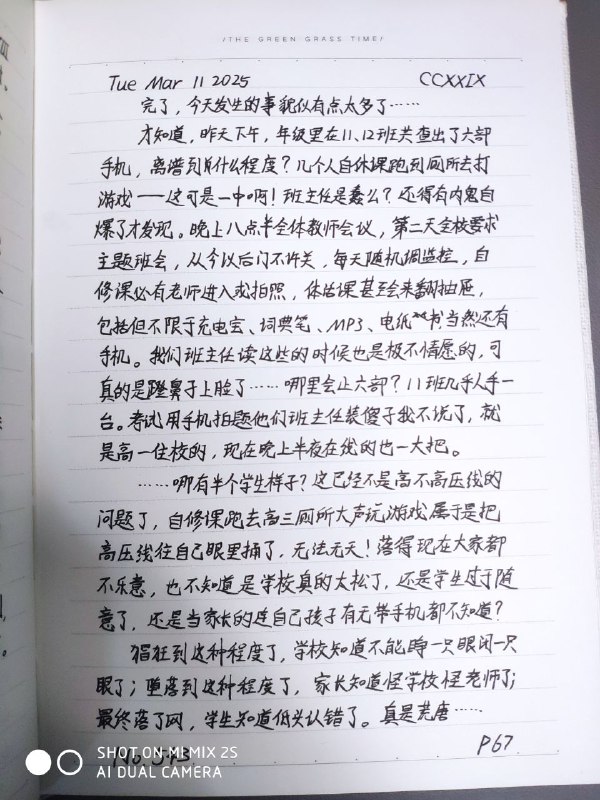 /THE GREEN GRASS TIME/
Tue Mar 11 2025 CCXXIX
完了，今天发生的事貌似有点太多了……
才知道，昨天下午，年级里在11、12班共查出了六部
手机，离谱到什么程度？几个人自休课跑到厕所去打
游戏——这可是一中啊！班主任是蠢么？还得有内鬼自
爆了才发现。晚上八点半全体教师会议，第二天全校要求
主题班会，从今以后门不许关，每天随机调监控，自
修课必有老师进入或拍照，体活课甚至会来翻抽屉，
包括但不限于充电宝、词典笔、MP3、电纸书当然还有
手机。我们班主任读这些的时候也是极不情愿的，可
真的是蹬鼻子上脸了……哪里会止六部？11班几乎人手一
台。考试用手机拍题他们班主任装傻子我不说了，就
是高一住校的，现在晚上半夜在线的也一大把。
……哪有半个学生样子？这已经不是高不高压线的
问题了，自修课跑去高三厕所大声玩游戏属于是把
高压线往自己眼里捅了，无法无天！落得现在大家都
不乐意，也不知道是学校真的太松了，还是学生过于随
意了，还是当家长的连自己孩子有无带手机都不知道？
猖狂到这种程度了，学校知道不能睁一只眼闭一只
眼了；堕落到这种程度了，家长知道怪学校怪老师了；
最终落了网，学生知道低头认错了。真是荒唐……
P67
SHOT ON MI MIX 2S
AI DUAL CAMERA